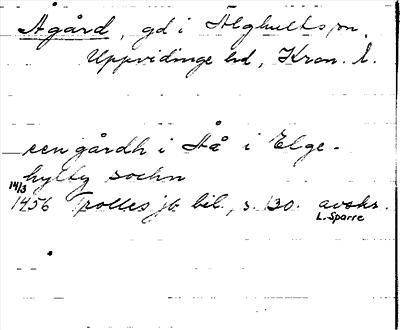 Ågård, gd i Älghults sn,
Uppvidinge hd, Kron. l.
een gårdh i Aå i Elge-
hylty sochn
14/3
1456 Trolles jb. bil., s. 130. avskr.
L. Sparre